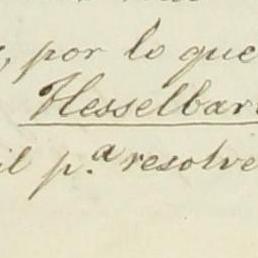 , por lo que
Hesselbar
il p.ª resolve